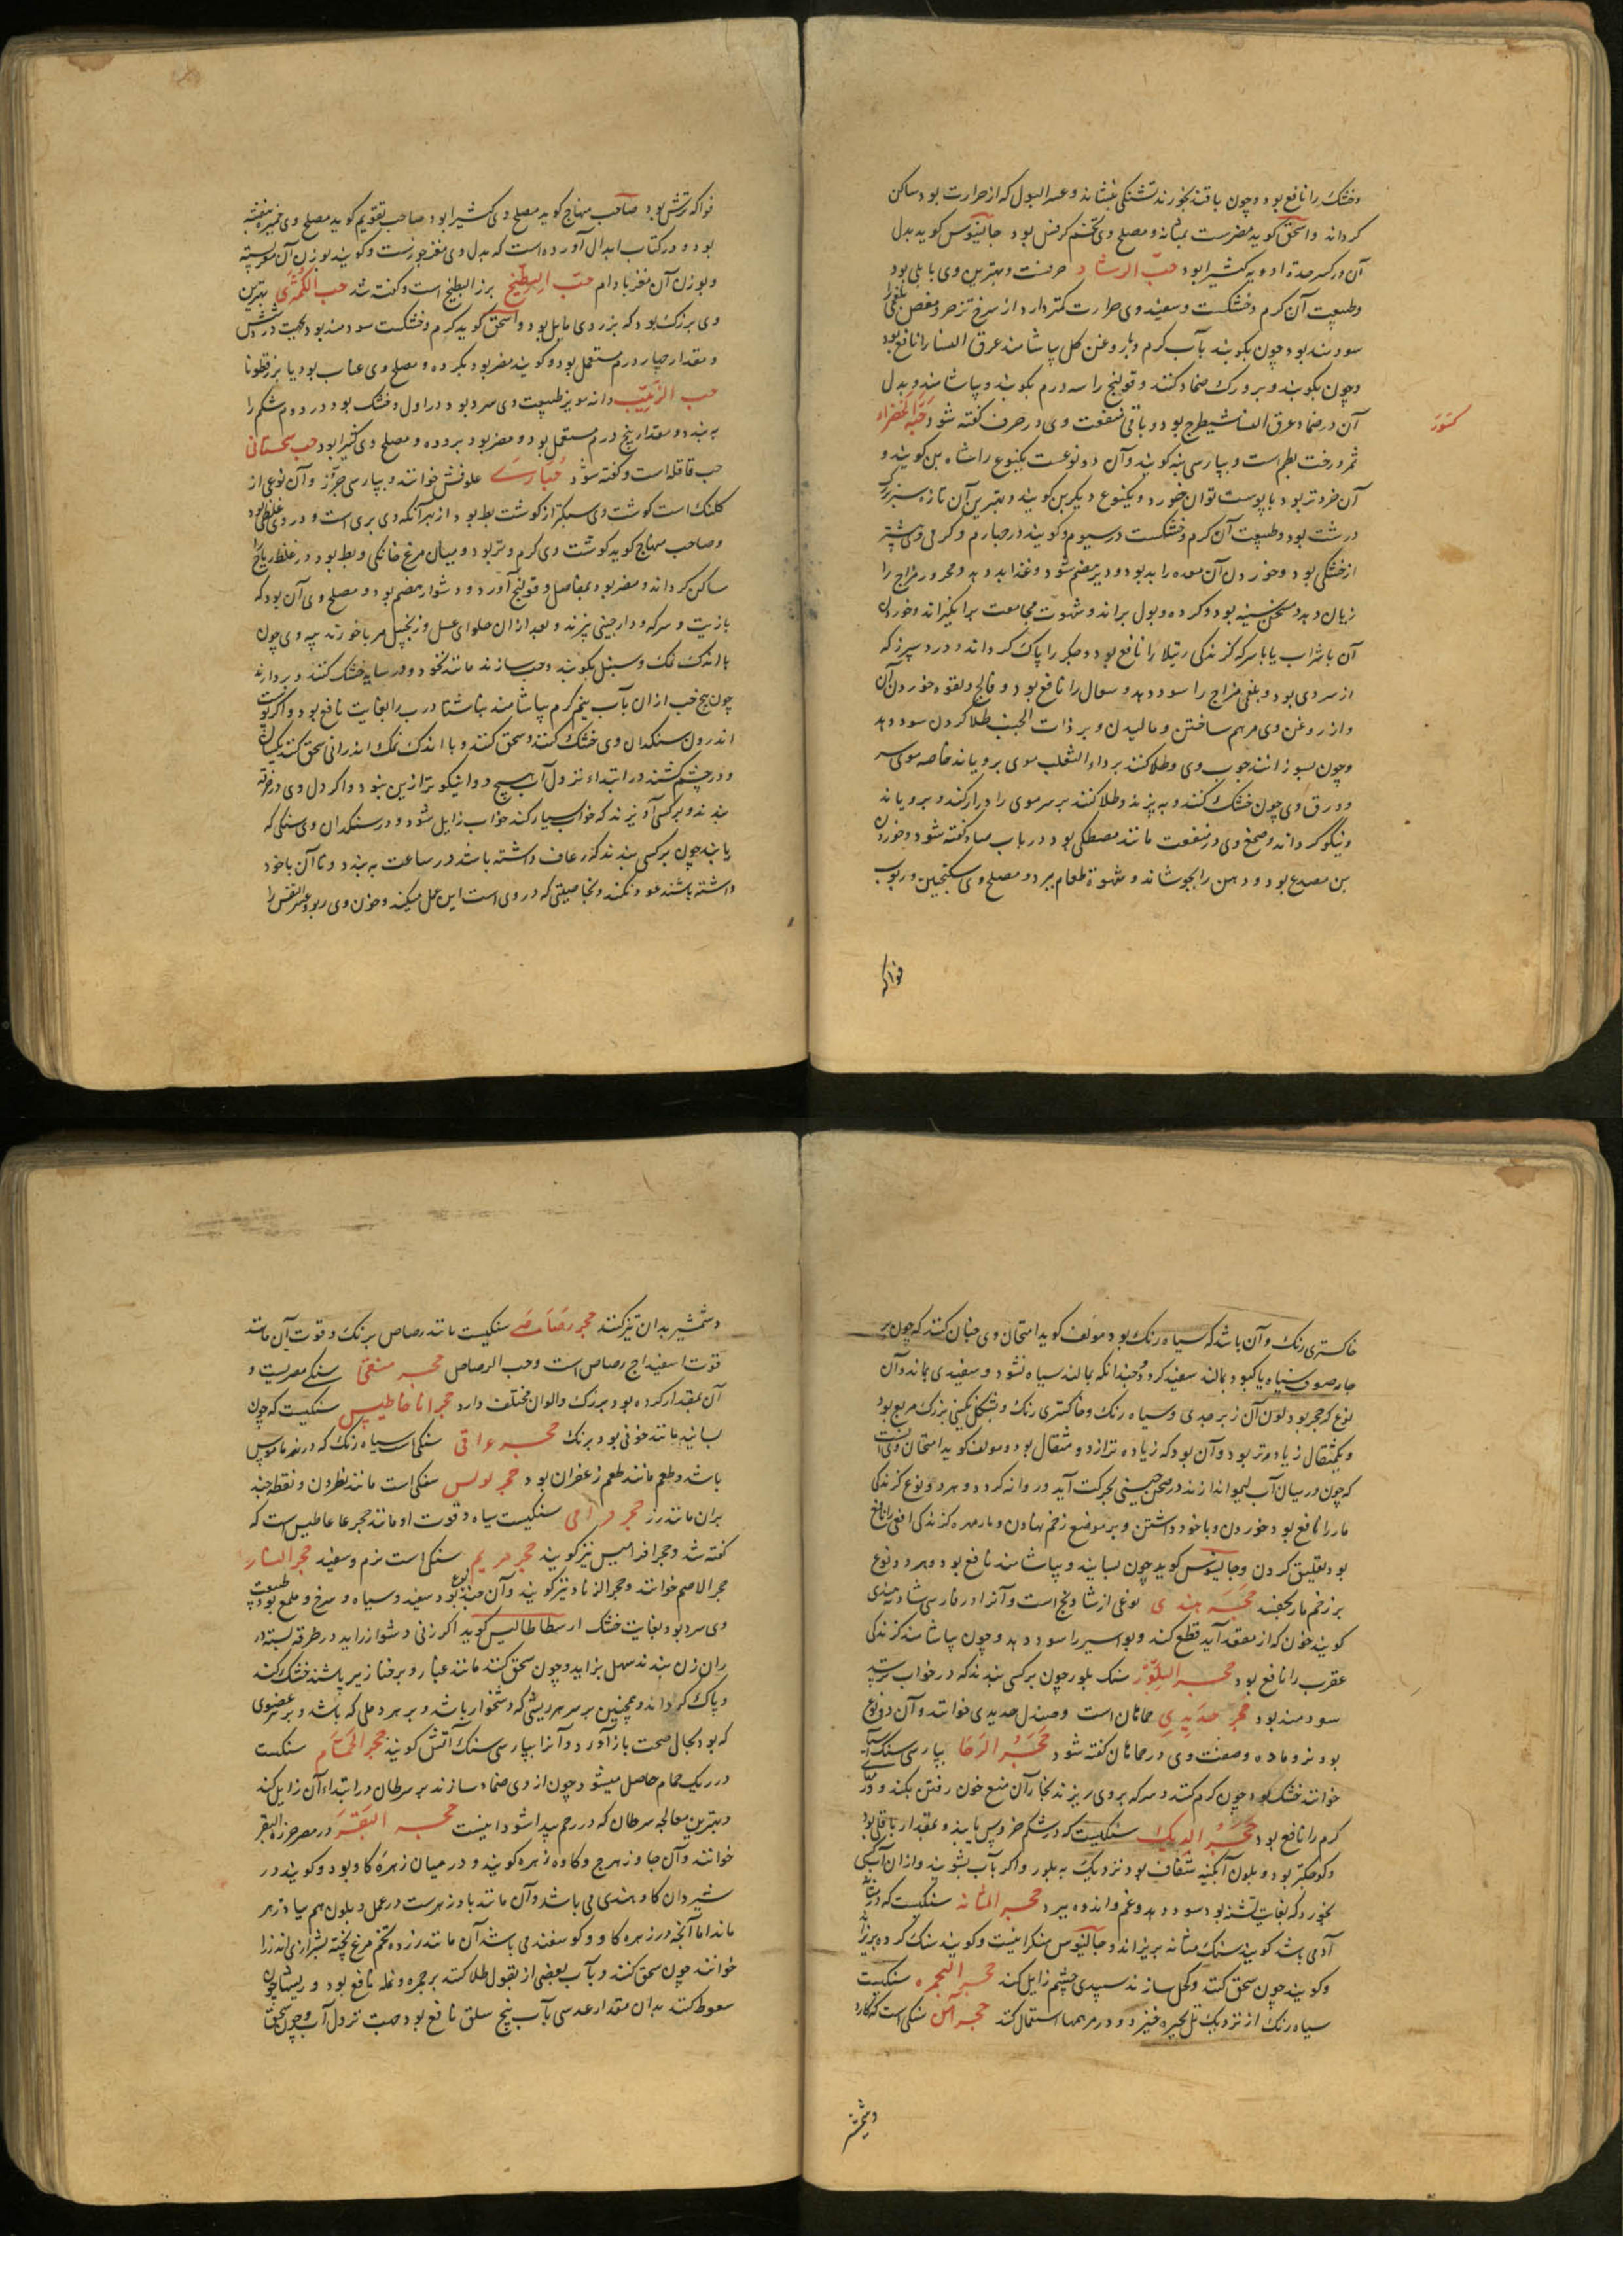 وخشک را نافع بود و چون با قند بخورند تشنکی بنشاند و عسر البول که از حرارت بود ساکن
کرداند و اسحق کوید مضرست بمثانه و مصلح وی تخم کرفس بود جالینوس کوید بدل
آن در کسر حدة ادویه کثیرا بود حب الرشاد حرفست و بهترین وی بابلی بود
وطبیعت آن کرم و خشکست و سفید وی حرارت کمتر دارد از سرخ تزحر و مغص بلغمی را
سودمند بود چون بکوبند بآب کرم و بار وغن کل بیاشامند عرق النسا را نافع بود
وچون بکوبند و بر ورک ضماد کنند و قولنج را سه درم بکوبند و بیاشامند و بدل
آن در ضماد عرق النسا شیطرج بود و باقی منفعت وی در حرف کفته شود حبة الخضراء
ثمر درخت بطم است و بپارسی بنه کویند وآن دو نوعست یکنوع را شاه بن کویند و
آن خردتر بود با پوست توان خورد و یکنوع دیکر بن کویند و بهترین آن تازه سبز بزرک
درشت بود وطبیعت آن کرم و خشکست در سیوم و کویند در چهارم و کرمی وی بیشتر
از خشکی بود و خوردن آن معده را بد بود و دیر هضم شود و غذا بد دهد و محرور مزاج را
زیان دهد و مسخن سینه بود و کرده و بول براند و شهوت مجامعت برانکیزاند و خوردن
آن با شراب یا با سرکه کزندکی رتیلا را نافع بود و جکر را پاک کرداند و درد سپرز که
از سردی بود و بلغمی مزاج را سود دهد و سعال را نافع بود و فالج و لقوه خوردن آن
واز روغن وی مرهم ساختن و مالیدن و بر ذات الجنب طلا کردن سود دهد
وچون بسوزانند چوب وی و طلا کنند بر داء الثعلب موی برویاند خاصه موی سر
وورق وی چون خشک کنند و به پزند و طلا کنند بر سر موی را دراز کند و برویاند
ونیکو کرداند و صمغ وی در منفعت مانند مصطکی بود و در باب صاد کفته شود و خوردن
بن مصدع بود و دهن را بجوشاند و شهوة طعام ببرد و مصلح وی سکنجبین و ربوب
فواکه
فواکه ترش بود صاحب منهاج کوید مصلح وی کثیرا بود صاحب تقویم کوید مصلح وی خمیره بنفشه
بود و در کتاب ابدال آورده است که بدل وی مغز جوزست و کویند بوزن آن مغز پسته
وبوزن آن مغز بادام حب البطیخ بزر البطیخ است و کفته شد حب الکمثری بهترین
وی بزرک بود که بزردی مایل بود و اسحق کوید کرم و خشکست سودمند بود بجهت درد شش
و مقدار چهار درم مستعمل بود و کویند مضر بود بکرده و مصلح وی عناب بود یا بزرقطونا
حب الزبیب دانه مویز طبیعت وی سرد بود در اول و خشک بود در دوم شکم را
به بندد و مقدار پنج درم مستعمل بود و مضر بود بروده و مصلح وی کثیرا بود حب سحستانی
حب قاقله است و کفته شود حباری علوفش خوانند و بپارسی جرز و آن نوعی از
کلنک است کوشت وی سبکتر از کوشت بط بود از بهر آنکه وی بری است و در وی غلظی بود
وصاحب منهاج کوید کوشت وی کرم و تر بود و میان مرغ خانکی و بط بود در غلظ ریاح را
ساکن کرداند و مضر بود بمفاصل و قولنج آورد و دشوار هضم بود و مصلح وی آن بود که
بازیت و سرکه و دارچینی پزند و بعد از ان حلوای عسل و زنجبیل مربا خورند پیه وی چون
با اندک نمک و سنبل بکوبند و حب سازند مانند نخود و در سایه خشک کنند و بردارند
چون پنج حب از ان بآب نیم کرم بیاشامند بناشتا درب را بغایت نافع بود و اکر پوست
اندرون سنکدان وی خشک کنند و سحق کنند و با اندک نمک اندرانی سحق کنند یکسان
ودر چشم کشند در ابتداء نزول آب هیچ دوا نیکوتر ازین نبود و اکر دل وی در خرقه
بندند و بر کسی آویزند که خواب بسیار کند خواب زایل شود و در سنکدان وی سنکی که
یابند چون بر کسی بندند که رعاف داشته باشد در ساعت به بندد و تا آن با خود
داشته باشند عود نکند و بخاصیتی که در وی است این عمل میکند و خون وی ربو و عسر النفس را
خاکستری رنک و آن باشد که سیاه رنک بود و مولف کوید امتحان وی چنان کنند که چون بر
جامه صوف سیاه یا کبود بمالند سفید کردد و چندانکه بمالند سیاه نشود و سفیدی بماند و آن
نوع که حجر بود لون آن زبرجدی و سیاه رنک و خاکستری رنک و بشکل نکینی بزرک مربع بود
و یکمثقال زیاده تر بود و آن بود که زیاده تر از ده مثقال بود و مولف کوید امتحان وی آنست
که چون در میان آب لیمو اندازند در صحن چینی بحرکت آید و روانه کردد و هر دو نوع کزندکی
مار را نافع بود خوردن و با خود داشتن و بر موضع زخم نهادن و مار مهره کزندکی افعی را نافع
بود تعلیق کردن و جالینوس کوید چون بسایند و بیاشامند نافع بود و هر دو نوع
بر زخم مار بچفسد حجر هندی نوعی از شادنج است و آنرا در فارسی شاد هندی
کویند خون که از مقعد آید قطع کند و بواسیر را سود دهد و چون بیاشامند کزندکی
عقرب را نافع بود حجر البلور سنک بلور چون بر کسی بندند که در خواب ترسد
سودمند بود حجر حدیدی خماهان است و صندل حدیدی خوانند و آن دو نوع
بود نر و ماده و صفت وی در خماهان کفته شود حجر الرحا بپارسی سنک آسیا
خوانند خشک بود چون کرم کنند و سرکه بروی ریزند بخار آن منع خون رفتن بکند و ورم
کرم را نافع بود حجر الدیک سنکیست که در شکم خروس یابند و بمقدار باقلی بود
وکوچکتر بود و بلون آبکینه شفاف بود نزدیک به بلور و اکر بآب بشویند و ازان آب کسی
بخورد که بغایت تشنه بود سود دهد و غم و اندوه ببرد حجر المثانه سنکیست که در مثانه
آدمی باشد کویند سنک مثانه بریزاند و جالینوس منکر اینست و کویند سنک کرده بریزاند
وکویند چون سحق کنند و کحل سازند سپیدی چشم زایل کند حجر البحیره سنکیست
سیاه رنک از نزدیک تل بحیره خیزد و در مرهمها استعمال کنند حجر المسن سنکی است که کارد
وشمشیر
وشمشیر بدان تیز کنند حجر رصاصی سنکیست مانند رصاص برنک و قوت آن مانند
قوت اسفیداج رصاص است و خبث الرصاص حجر منفی سنکی مصریست و
آن بمقدار کرده بود بزرک و الوان مختلف دارد حجر اناخاطیس سنکیست که چون
بسایند مانند خونی بود برنک حجر عراقی سنکی است سیاه رنک که در نهر ماموس
باشد و طعم مانند طعم زعفران بود حجر لولس سنکی است مانند نطرون و نقطه چند
بران مانند زر حجر درامی سنکیست سیاه و قوت او مانند حجر غاغاطیس است که
کفته شد و حجر افرامیس نیز کویند حجر مریم سنکی است نرم و سفید حجر النسار
حجر الاصم خوانند و حجر الزناد نیز کویند و آن چند نوع بود سفید و سیاه و سرخ و ملمع بود طبیعت
وی سرد بود بغایت خشک ارسطاطالیس کوید اکر زنی دشوار زاید در خرقه بسته در
ران زن بندند سهل بزاید و چون سحق کنند مانند غبار و بر خنازیر پاشند خشک کند
و پاک کرداند و همچنین بر سر هر ریشی که دشخوار باشد و بر هر دملی که باشد و بر هر عضوی
که بود بحال صحت باز آورد و آنرا بپارسی سنک آتش کویند حجر الحمام سنکیست
در ریک حمام حاصل میشود چون از وی ضماد سازند بر سرطان در ابتداء آن زایل کند
و بهترین معالجه سرطان که در رحم پیدا شود اینست حجر البقر در مصر خرزة البقر
خوانند و آن جاوزهرج و کاوه زهره کویند و در میان زهره کاو بود و کویند در
شیردان کاو هندی می باشد و آن مانند بادزهرست در عمل و بلون هم ببادزهر
ماند اما آنچه در زهره کاو و کوسفند می باشد آن مانند زرده تخم مرغ پخته بشیرازی اندرزا
خوانند چون سحق کنند و بآب بعضی از بقول طلا کنند بر جمره و نمله نافع بود و ریشها چون
سعوط کنند بدان مقدار عدسی بآب بیخ سلق نافع بود جهت نزول آب و چون سحق